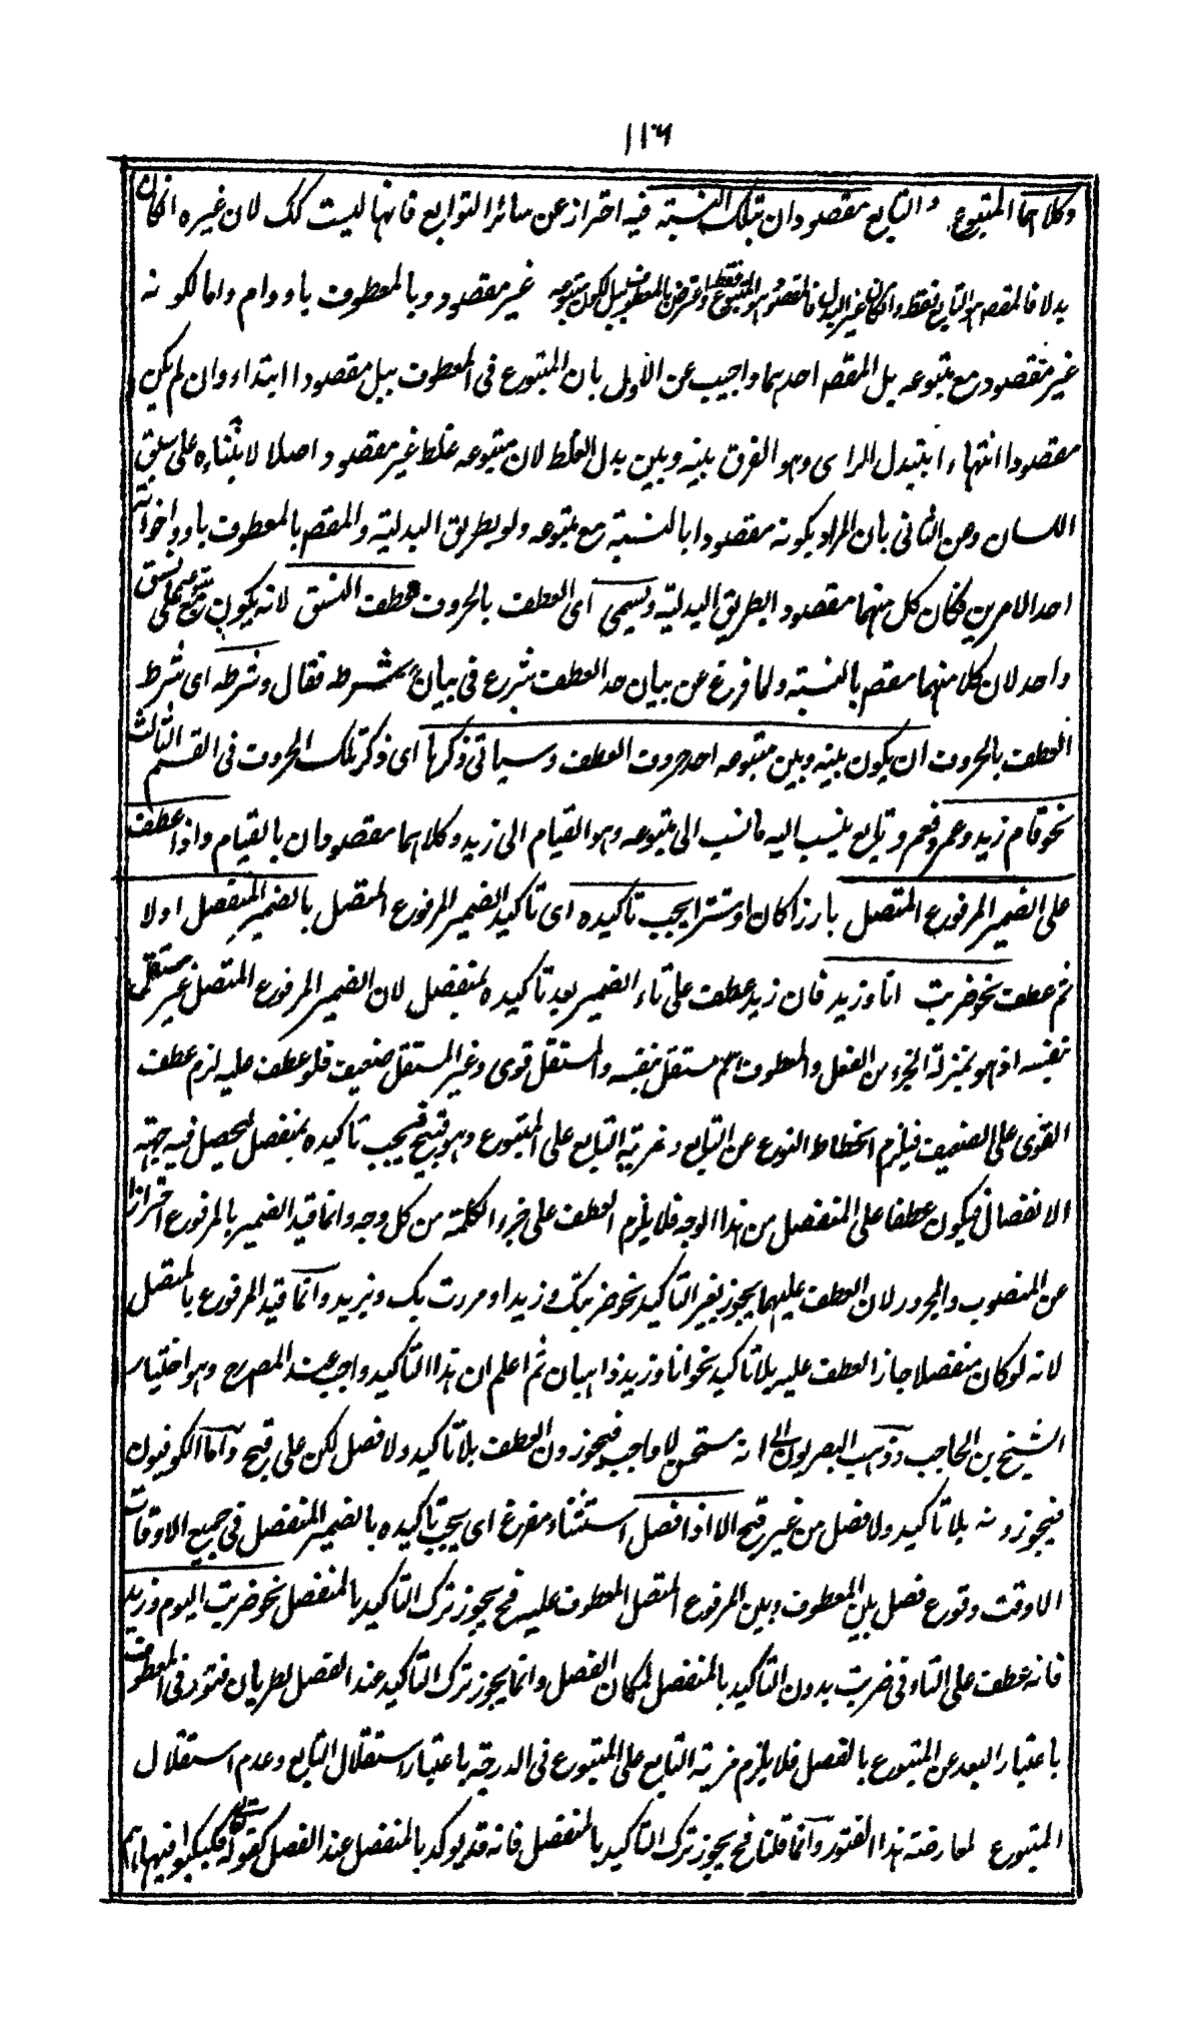 ١١٦
وكلاهما المتبوع والتابع مقصودان بتلك النسبة فيه احتراز عن سائر التوابع فانها ليست كك لان غيره انكان
بدلا فالمقصم هو التابع فقط وانكان غير البدل فالمقصود هو المتبوع فقط واعترض المعطوف ببل لكون متبوعه غير مقصود وبالمعطوف باو وام واما لكونه
غير مقصود مع متبوعه بل المقصم احدهما واجيب عن الاول بان المتبوع فى المعطوف ببل مقصودا ابتداء وان لم يكن
مقصودا انتهاء ابتبدل الراى وهو الفرق بينه وبين بدل الغلط لان متبوعه غلط غير مقصود اصلا لابتنائه على سبق
اللسان وعن الثانى بان المراد بكونه مقصودا بالنسبة مع متبوعه ولو بطريق البدلية والمقصم بالمعطوف باو واخواته
احد الامرين فكان كل منهما مقصودا بطريق البدلية ويسمى اى العطف بالحروف عطف النسق لانه يكون مع متبوعه على نسق
واحد لان كلا منهما مقصم بالنسبة ولما فرغ عن بيان حد العطف شرع فى بيان شرطه فقال وشرطه اى شرط
العطف بالحروف ان يكون بينه وبين متبوعه احد حروف العطف وسياتى ذكرها اى ذكر تلك الحروف فى القسم الثالث
نحو قام زيد وعمرو فعمرو تابع ينسب اليه ما نسب الى متبوعه وهو القيام الى زيد وكلاهما مقصودان بالقيام واذا عطف
على الضمير المرفوع المتصل بارزا كان او مستترا يجب تاكيده اى تاكيد الضمير المرفوع المتصل بالضمير المنفصل اولا
ثم عطف نحو ضربت انا وزيد فان زيد عطف على تاء الضمير بعد تاكيده بمنفصل لان الضمير المرفوع المتصل غير مستقل
بنفسه اذ هو بمنزلة الجزء من الفعل والمعطوف اسم مستقل بنفسه والمستقل قوى وغير المستقل ضعيف فلو عطف عليه لزم عطف
القوى على الضعيف فيلزم انحطاط النوع عن التابع ومزية التابع على المتبوع وهو قبيح فيجب تاكيده بمنفصل ليحصل فيه جهة
الانفصال فيكون عطفا على المنفصل من هذا الوجه فلا يلزم العطف على جزء الكلمة من كل وجه وانما قيد الضمير بالمرفوع احترازا
عن المنصوب والمجرور لان العطف عليهما يجوز بغير التاكيد نحو ضربتك وزيدا ومررت بك وبزيد وانما قيد المرفوع بالمتصل
لانه لو كان منفصلا جاز العطف عليه بلا تاكيد نحو انا وزيد ذاهبان ثم اعلم ان هذا التاكيد واجب عند المصرح وهو اختيار
الشيخ بن الحاجب وذهب البصريون الى انه مستحسن لا واجب فيجوزون العطف بلا تاكيد ولا فصل لكن على قبح واما الكوفيون
فيجوزونه بلا تاكيد ولا فصل من غير قبح الا اذا فصل استثناء مفرغ اى يجب تاكيده بالضمير المنفصل فى جميع الاوقات
الا وقت وقوع فصل بين المعطوف وبين المرفوع المتصل المعطوف عليه فح يجوز ترك التاكيد بالمنفصل نحو ضربت اليوم وزيد
فانه عطف على التاء فى ضربت بدون التاكيد بالمنفصل لمكان الفصل وانما يجوز ترك التاكيد عند الفصل لطريان فتور فى المعطوف
باعتبار البعد عن المتبوع بالفصل فلا يلزم مزية التابع على المتبوع فى الدرجة باعتبار استقلال التابع وعدم استقلال
المتبوع لمعارضته هذا الفتور وانما قلنا فح يجوز ترك التاكيد بالمنفصل فانه قد يوكد بالمنفصل عند الفصل كقوله تعالى فكبكبوا فيها هم